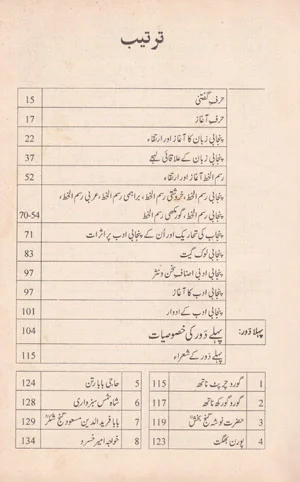 ترتیب
حرفِ گفتنی 15
حرفِ آغاز 17
پنجابی زبان کا آغاز اور ارتقاء 22
پنجابی زبان کے علاقائی لہجے 37
رسم الخط آغاز اور ارتقاء 52
پنجابی رسم الخط، خروشتی رسم الخط، براہمی رسم الخط، عربی رسم الخط،
پنجابی رسم الخط، گورمکھی رسم الخط 70-54
پنجاب کی تحاریک اور اُن کے پنجابی ادب پر اثرات 71
پنجابی لوک گیت 83
پنجابی ادبی اصنافِ سخن و نثر 97
پنجابی ادب کا آغاز 97
پنجابی ادب کے ادوار 101
پہلا دَور: پہلے دَور کی خصوصیات 104
پہلے دَور کے شعراء 115
1 گورو چرپٹ ناتھ 115
2 گورو گورکھ ناتھ 117
3 حضرت نوشہ گنج بخشؒ 119
4 پورن بھگت 123
5 حاجی بابا رتن 124
6 شاہ شمس سبزواری 128
7 بابا فرید الدین مسعود گنج شکرؒ 129
8 خواجہ امیر خسرو 134